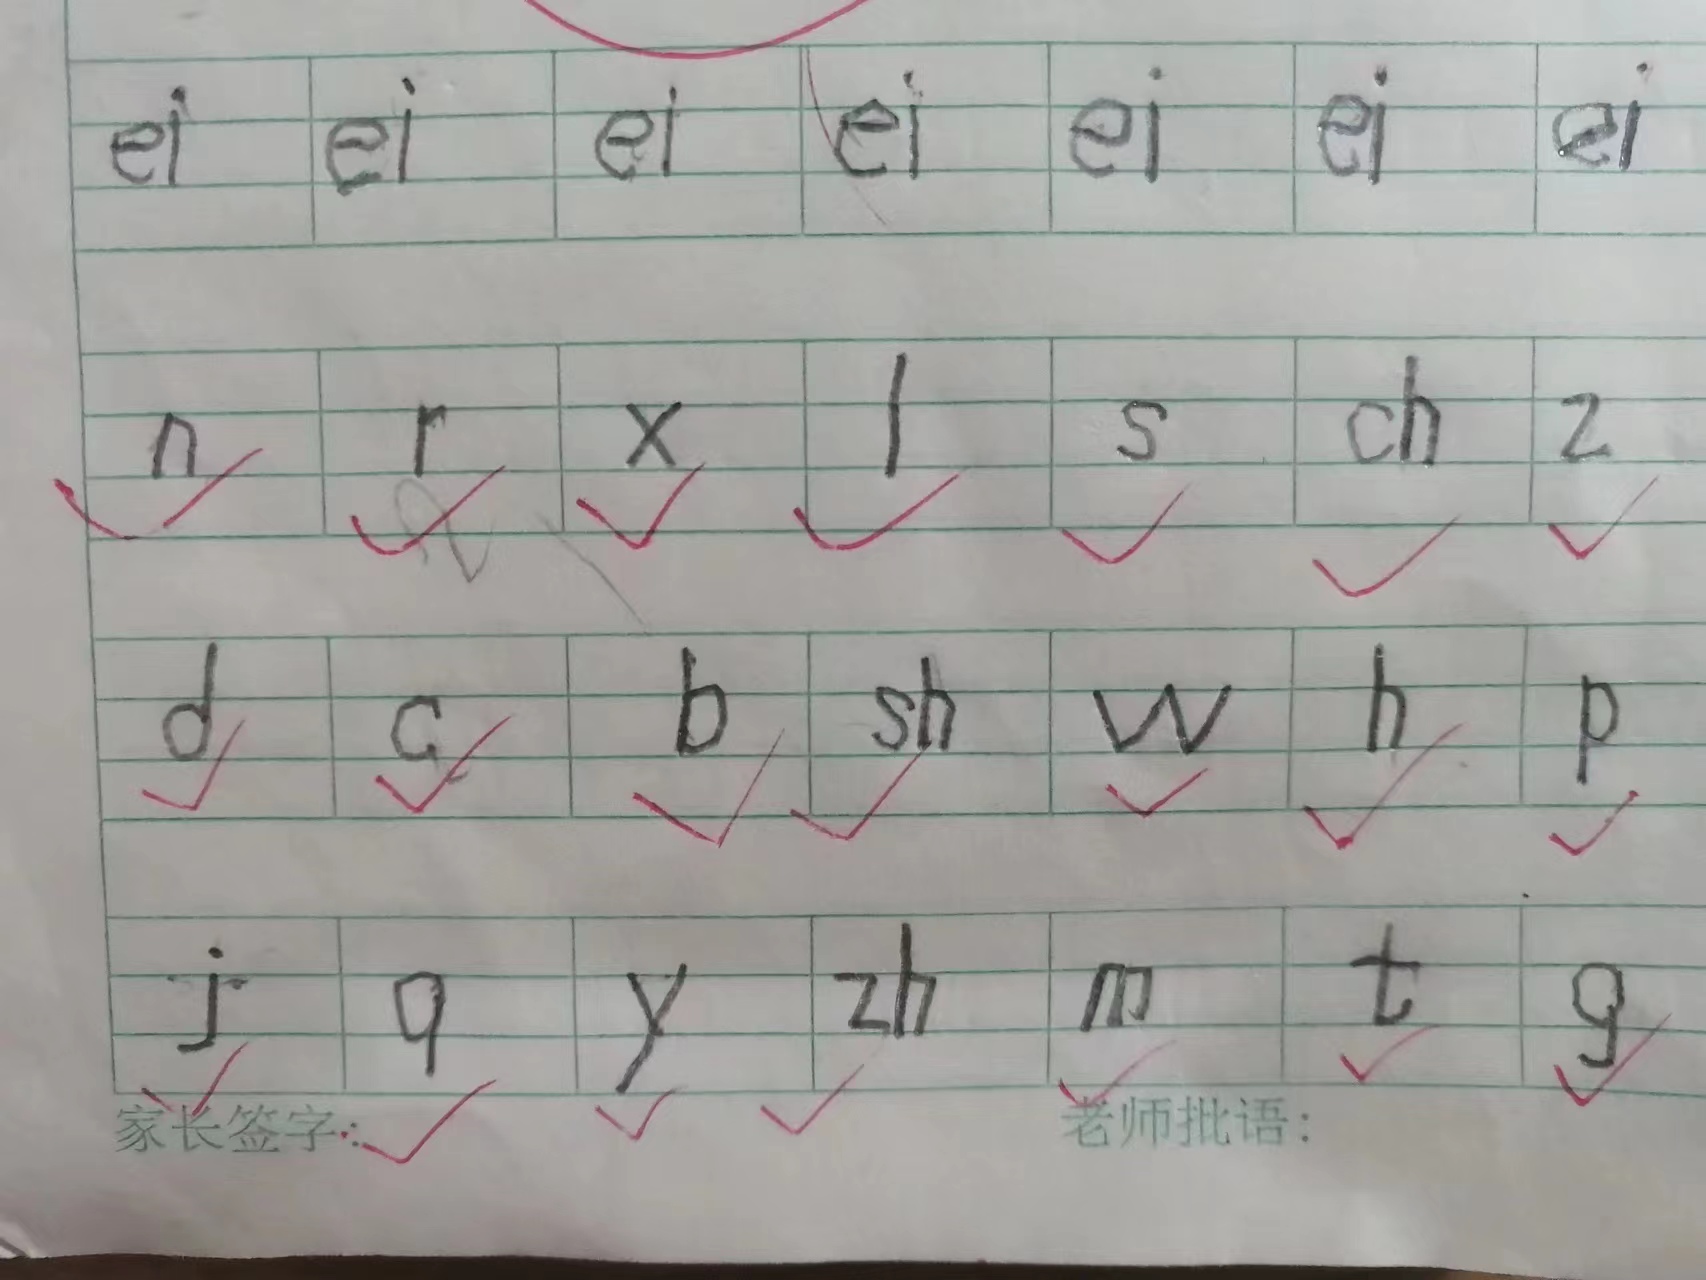 ei ei ei ei ei ei ei
n r x l s ch z
d c b sh w h p
j q y zh m t g
家长签字: 老师批语: